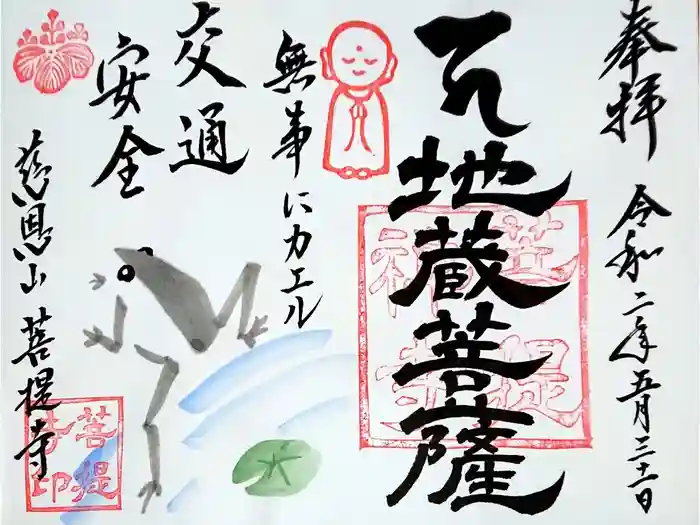 奉拝
令和二年五月三十一日
地蔵菩薩
無事にカエル
交通
安全
慈恩山 菩提寺
菩提
寺印